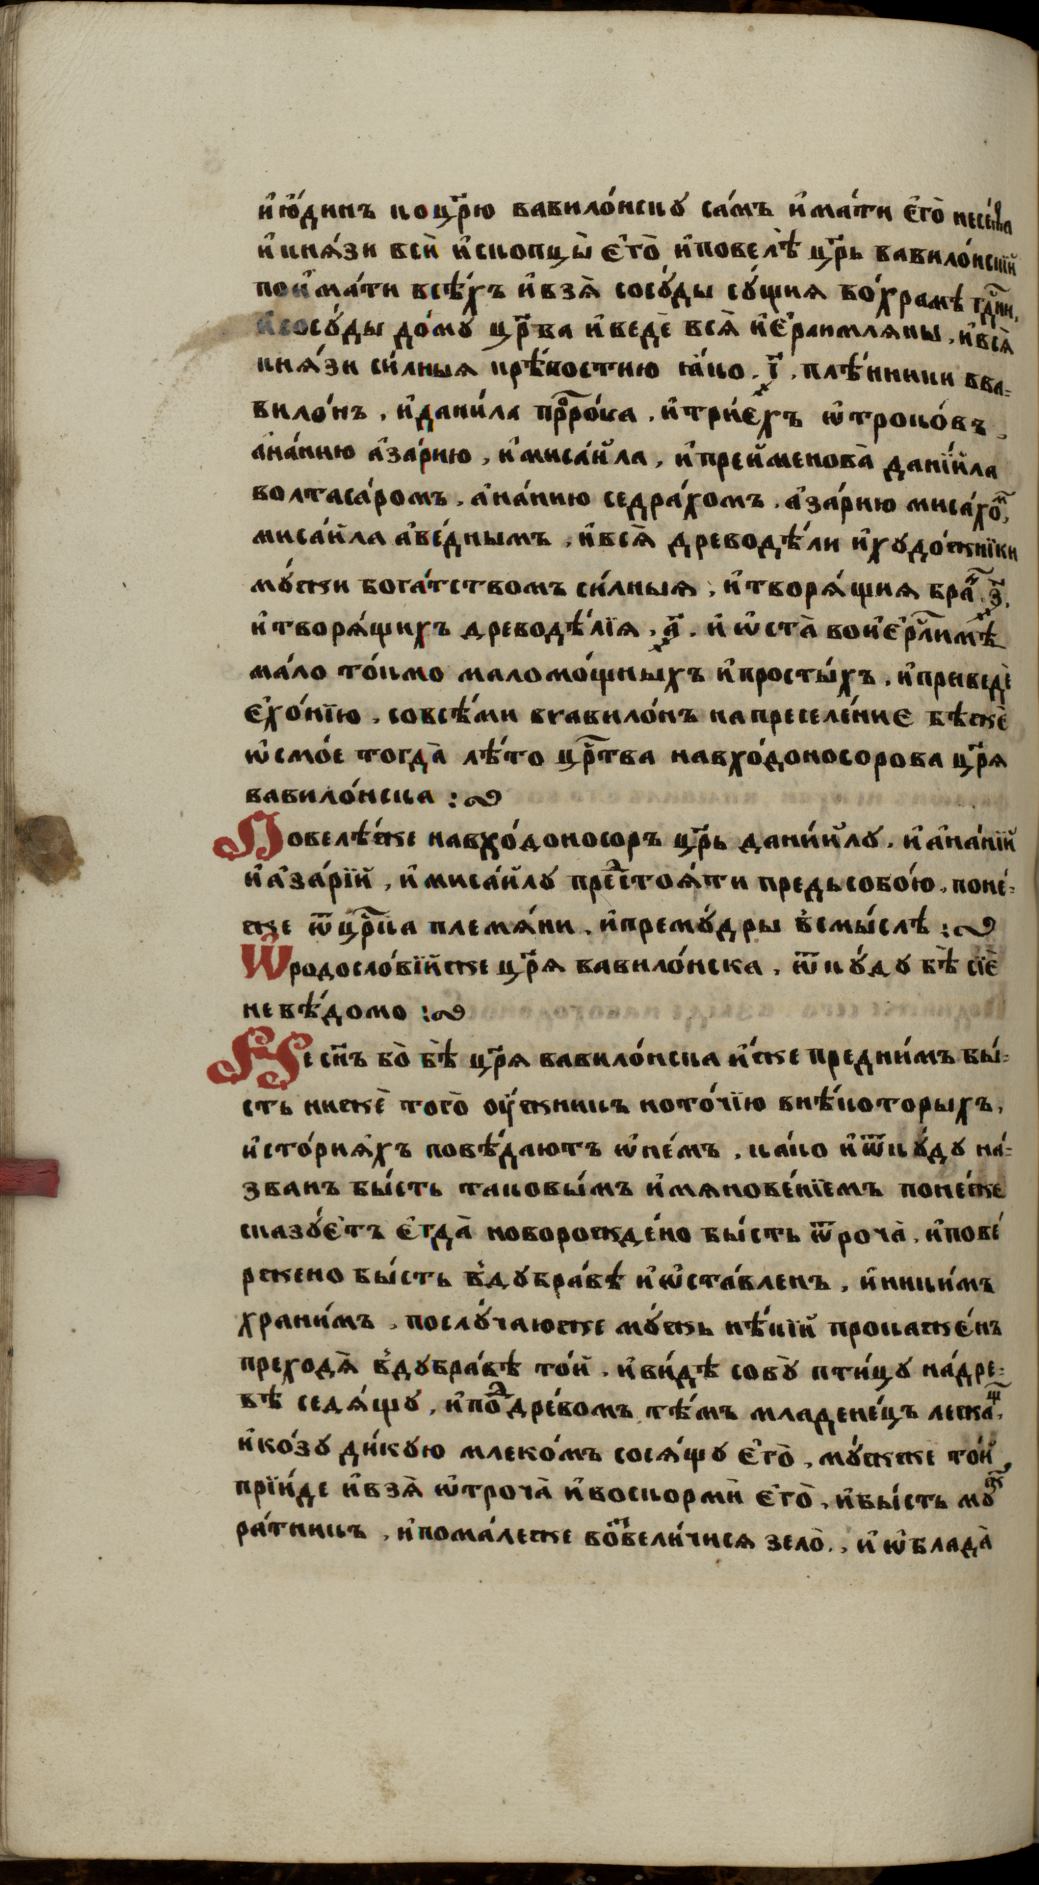 и҆ ю҆́динъ ко цр҃ю вавило́нску са́мъ и҆ ма́ти є҆го̀
и҆ кня́зи всѝ и҆ скопцы̀ є҆го̀ и҆ повелѣ̀ цр҃ь вавило́нскїй
пои҆ма́ти всѣ́хъ и҆ взя̀ сосу́ды су́щия во хра́мѣ гд҃ни,
и҆ сосу́ды до́му цр҃ва и҆ ведѐ вся̀ и҆є҆раимляны, и҆ вся̀
кня́зи си́лныя крѣ́постию ꙗ҆́ко .ꙇ҃. плѣ́нники вва-
вило́нъ, и҆ дани́ла прⷪ҇ро́ка, и҆ трие́хъ ѡ҆троко́въ,
а҆на́нию а҆за́рию, и҆ мисаи́ла, и҆ преи҆менова̀ данїи́ла
волтаса́ромъ, а҆на́нию седра́хомъ, а҆за́рию миса́хоⷨ,
мисаи́ла а҆ве́днымъ, и҆ вся̀ древодѣ́ли и҆ худо́жнїки
му́жи бога́тствомъ си́лныя, и҆ творя́щия браⷩ҇ .з҃.
и҆ творя́щихъ древодѣ́лїя .а҃. и҆ ѡ҆ста̀ во и҆є҆рⷭ҇ли́мѣ
ма́ло то́кмо маломо́щныхъ и҆ просты́хъ, и҆ приведѐ
є҆хо́нїю, со всѣ́ми в вавило́нъ на преселе́ние бѣ́же
ѡ҆смо́е тогда̀ лѣ́то црⷭ҇тва навхо́доносорова цр҃я
вавило́нска :~
Повелѣ́же навхо́доносоръ цр҃ь дани́илу, и҆ а҆на́нїй
и҆ а҆за́рїй, и҆ мисаи́лу преⷣстоя́ти предь собо́ю, поне́-
же ѿ цр҃ка племя́ни, и҆ прему́дры в смы́слѣ :~
Ѡ҆ родосло́вїйже цр҃я вавило́нска, ѿку́ду бѣ̀ сїѐ
невѣ́домо :~
Не сн҃ъ бо̀ бѣ̀ цр҃я вавило́нска и҆́же предни́мъ бы́-
сть нижѐ того̀ оу҆́жникъ ното́чїю в нѣ́которыхъ,
и҆сто́рияхъ повѣ́даютъ ѡ҆ не́мъ, ка́ко и҆ ѿку́ду на́-
званъ бы́сть таковы́мъ и҆мянове́нїемъ поне́же
сказу́етъ є҆гда̀ новорожде́но бы́сть ѿроча̀, и҆ пове́
ржено бы́сть в дубра́вѣ и҆ ѡ҆ста́вленъ, и҆ ники́мъ
храни́мъ, послу́чаюже му́жь нѣ́кїй прокаже́нъ
преходя̀ в дубра́вѣ то́й, и҆ ви́дѣ сову̀ пти́цу на́ дре-
вѣ седя́щу, и҆ поⷣ дре́вомъ тѣ́мъ младене́цъ лежаⷳ,
и҆ козу ди́кую млеко́мъ сося́щу є҆го̀, му́жже то́й,
прїи́де и҆ взя̀ ѡ҆троча̀ и҆ воскормѝ є҆го̀, и҆ бы́сть муⷤ
ра́тникъ, и҆ помалеже воⷥвели́чися зело̀., и҆ ѡ҆блада̀